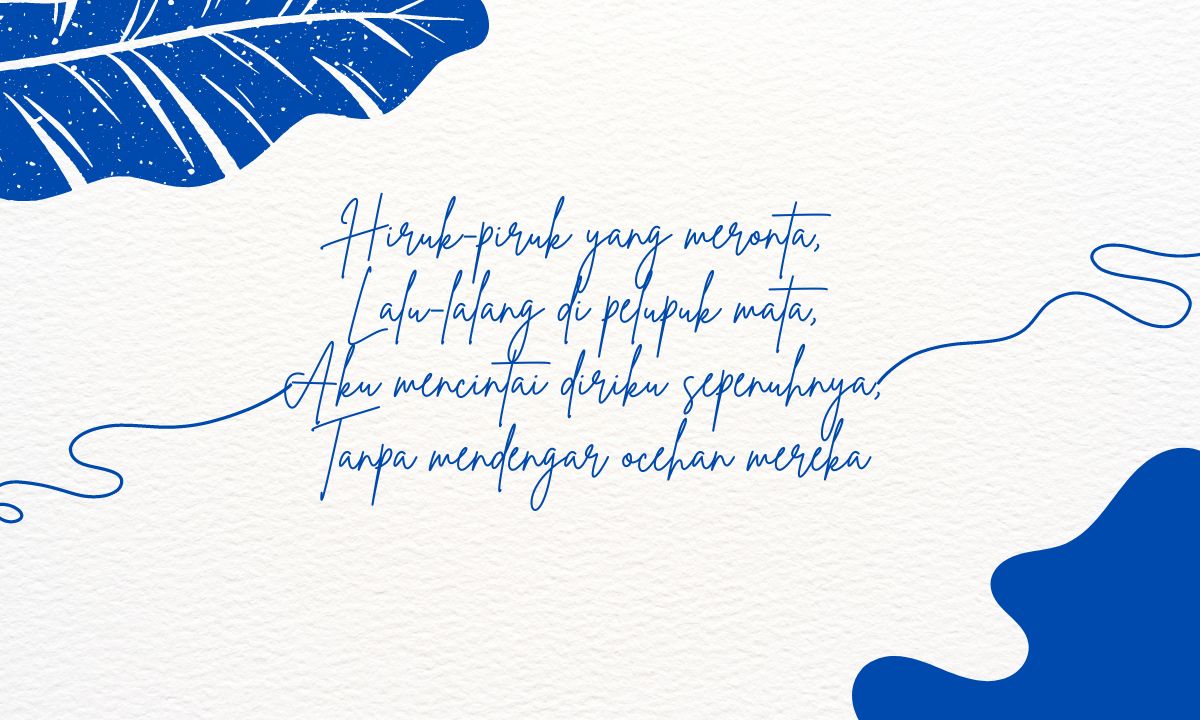 Hiruk-piruk yang meronta,
Lalu-lalang di pelupuk mata,
Aku mencintai diriku sepenuhnya,
Tanpa mendengar ocehan mereka